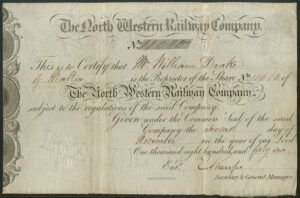 The North Western Railway Company.
No
This is to Certify that Mr William Drake
of Malton is the Proprietor of the Share No of
The North Western Railway Company,
subject to the regulations of the said Company.
Given under the Common Seal of the said
Company the Second day of
November in the year of our Lord
One thousand eight hundred and forty six.
Entd.
Secretary & General Manager.